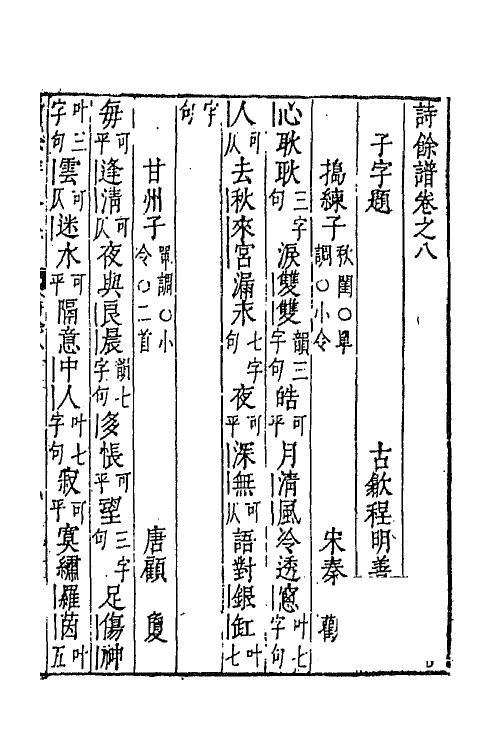 詩餘譜卷之八
子字題　古歙程明善
搗練子秋閨○單調○小令　宋秦　觀
心耿耿三字句淚雙雙韻三字句皓可平月清風冷透窓叶七字句
人可仄去秋來宮漏永七字句夜可平深無可仄語對銀缸叶七
字句
甘州子單調○小令○二首　唐顧　敻
每可平逢清可仄夜與良晨韻七字句多悵可平望三字句足傷神
叶三字句雲可仄迷水可平隔意中人叶七字句寂可平寞繡羅茵叶五